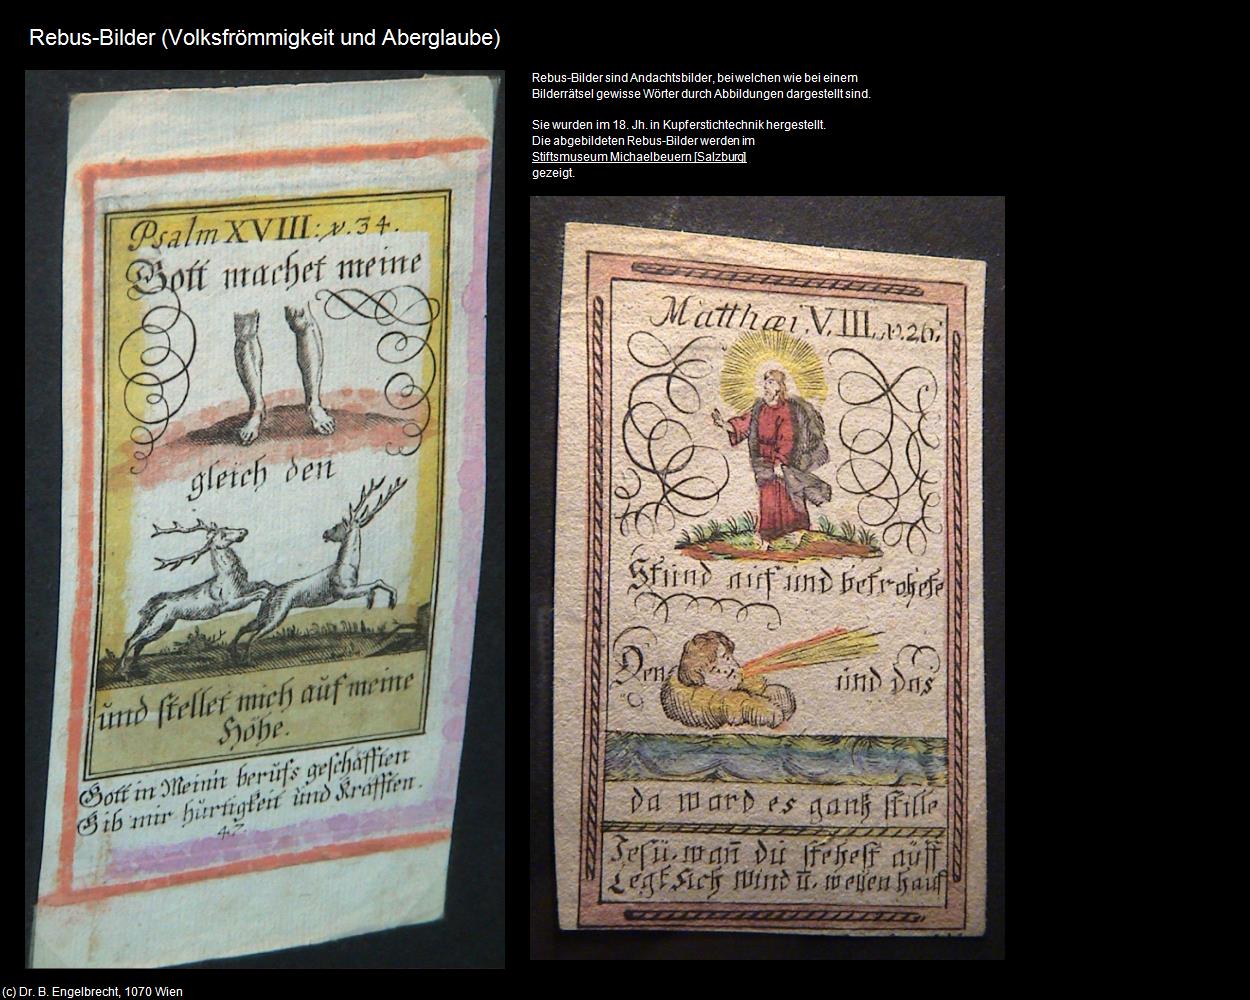 Rebus-Bilder (Volksfrömmigkeit und Aberglaube)
Rebus-Bilder sind Andachtsbilder, bei welchen wie bei einem
Bilderrätsel gewisse Wörter durch Abbildungen dargestellt sind.
Sie wurden im 18. Jh. in Kupferstichtechnik hergestellt.
Die abgebildeten Rebus-Bilder werden im
Stiftsmuseum Michaelbeuern [Salzburg]
gezeigt.
Psalm XVIII: v. 34.
Gott machet meine
gleich den
und stellet mich auf meine
Höhe.
Gott in Meinn berufs geschäfften
Gib mir hurtigkeit und Kräfften.
47.
Matthæi. V. III. v. 26:
Stund auf und betrohete
Den und das
da ward es gantz stille
Jesu. wañ du stehest auff
Legt sich Wind u. wellen hauf
(c) Dr. B. Engelbrecht, 1070 Wien